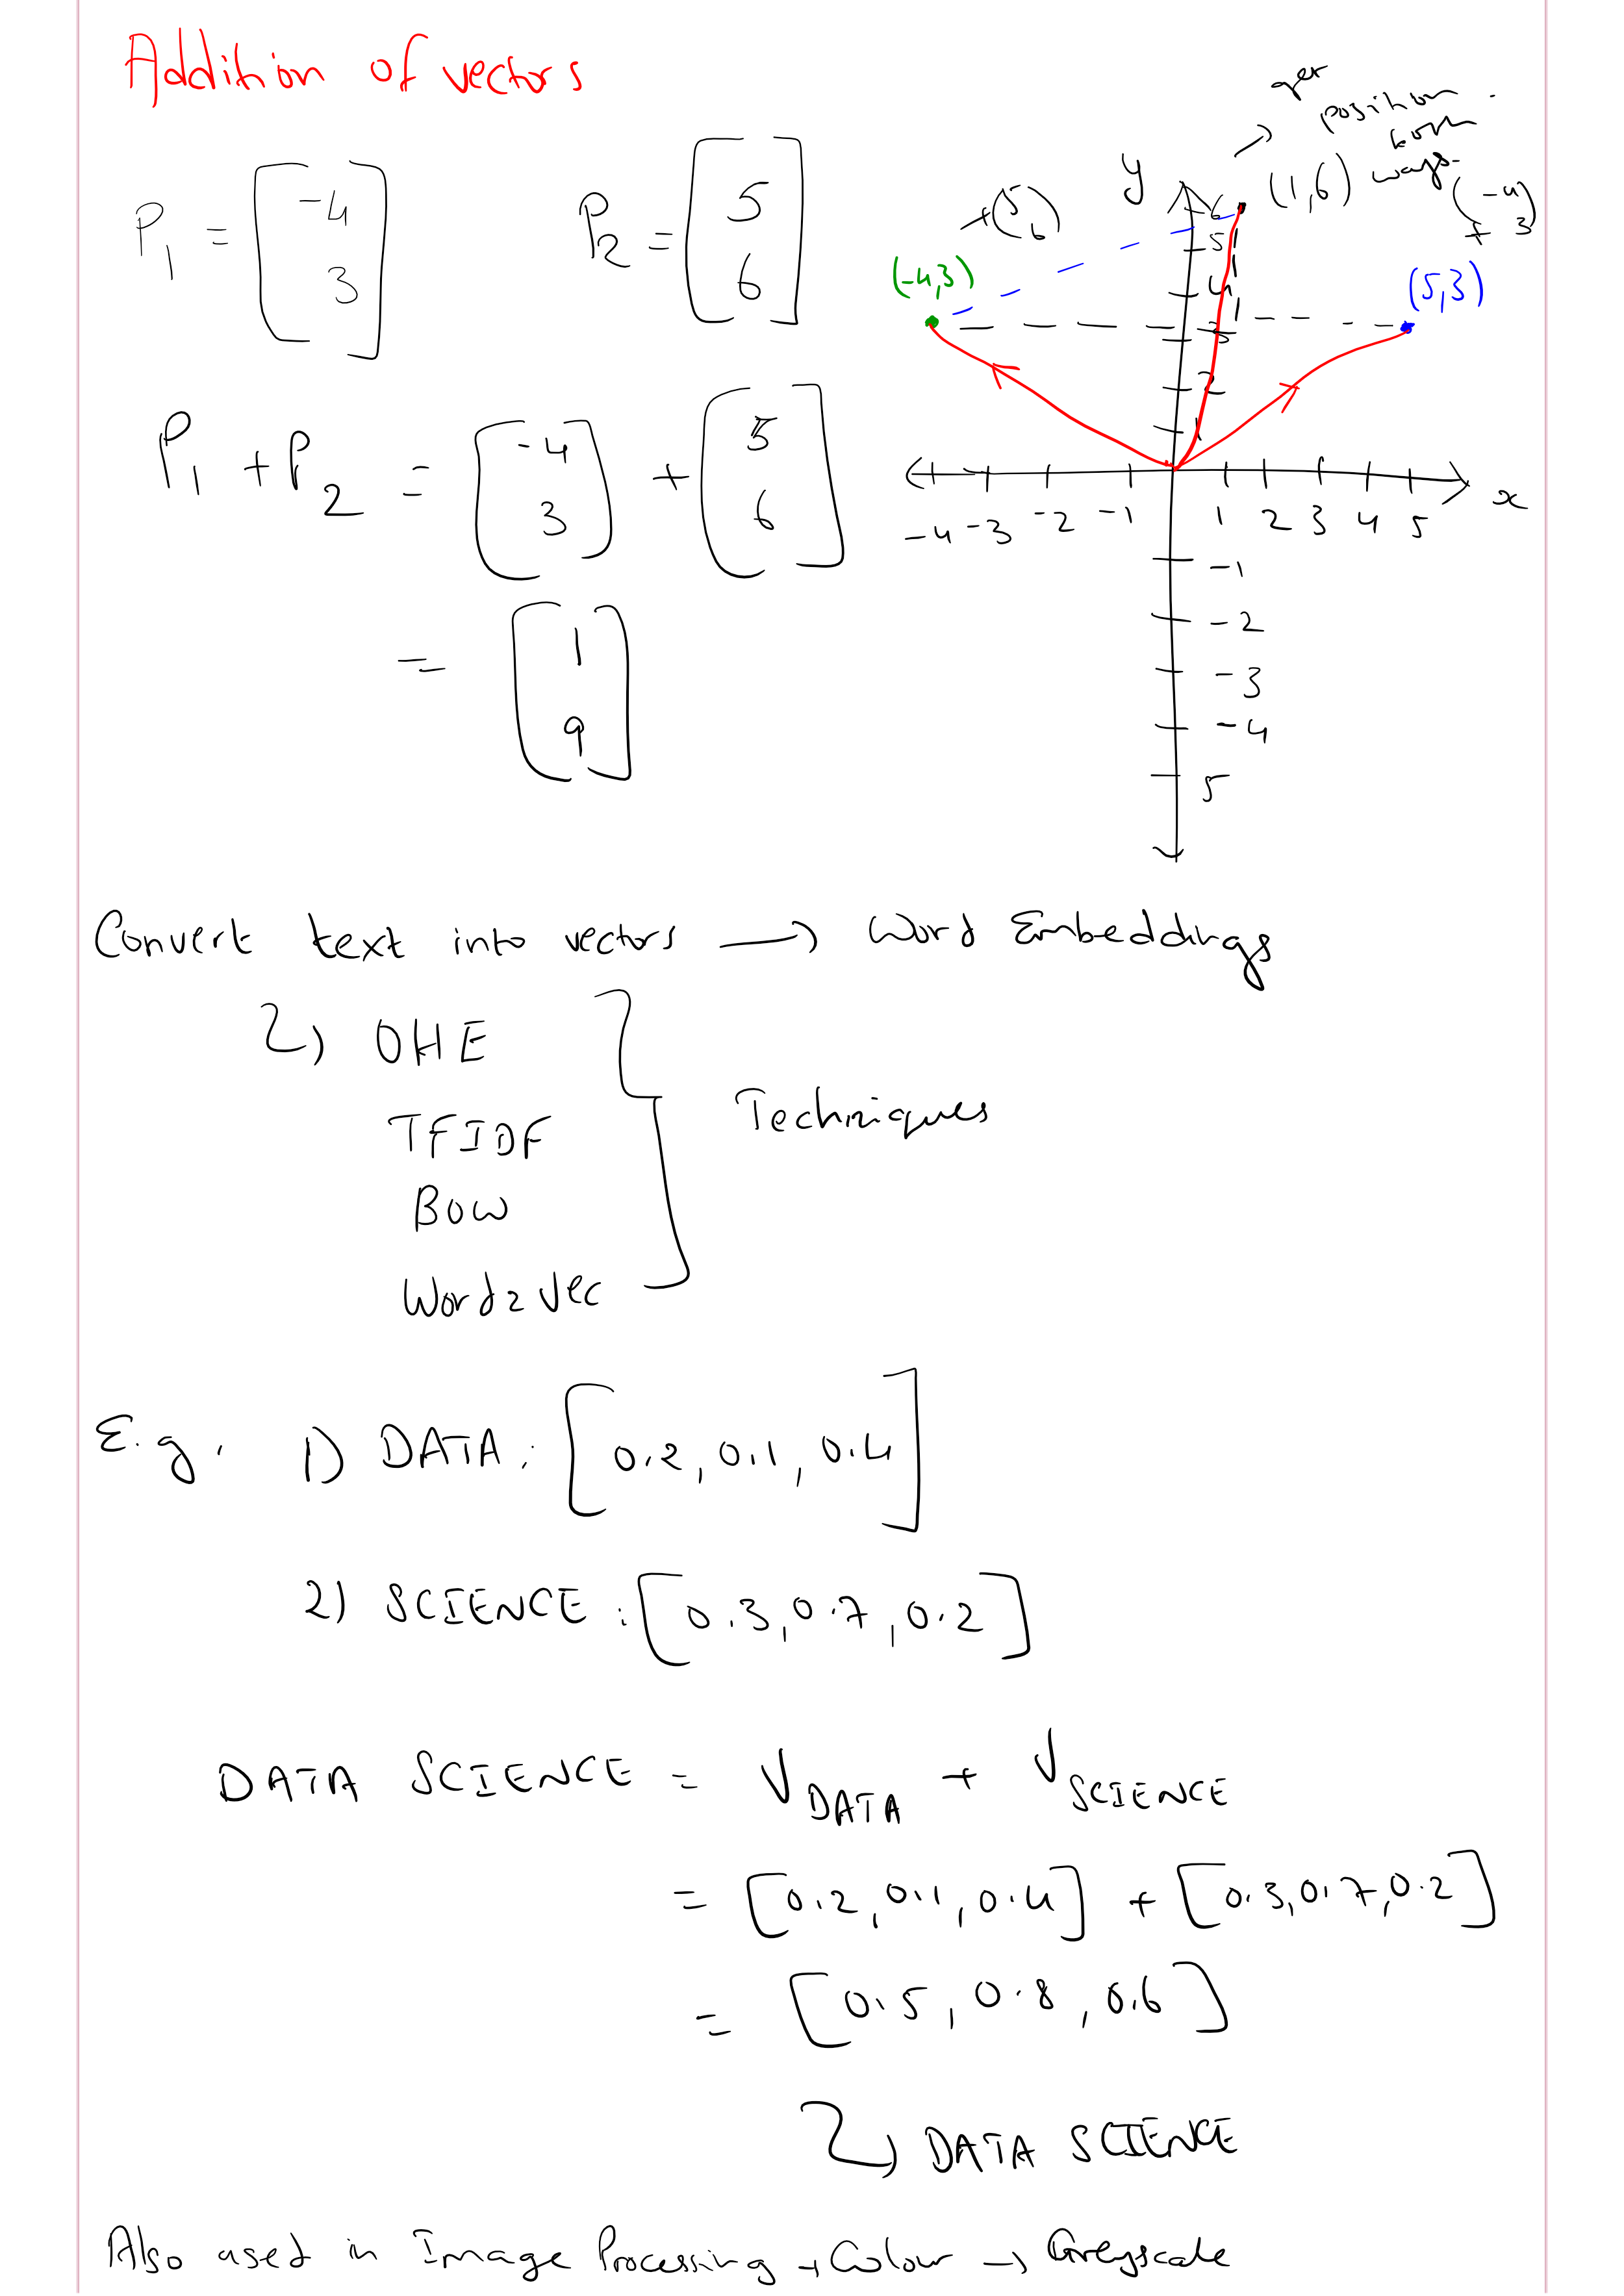 Addition of vectors
P1 = [-4 3] P2 = [5 6]
P1 + P2 = [-4 3] + [5 6]
= [1 9]
→ position
(1,6) ways
+(5 6)
(-4 + 3)
(-4,3)
(5,3)
y
6
5
4
3
2
1
x
-4 -3 -2 -1 1 2 3 4 5
-1
-2
-3
-4
5
Convert text into vectors → Word Embeddings
OHE
TFIDF
BOW
Word2Vec
Techniques
E.g. 1) DATA : [0.2, 0.1, 0.4]
2) SCIENCE : [0.3, 0.7, 0.2]
DATA SCIENCE = V DATA + V SCIENCE
= [0.2, 0.1, 0.4] + [0.3, 0.7, 0.2]
= [0.5, 0.8, 0.6]
DATA SCIENCE
Also used in Image Processing → Colour → Greyscale